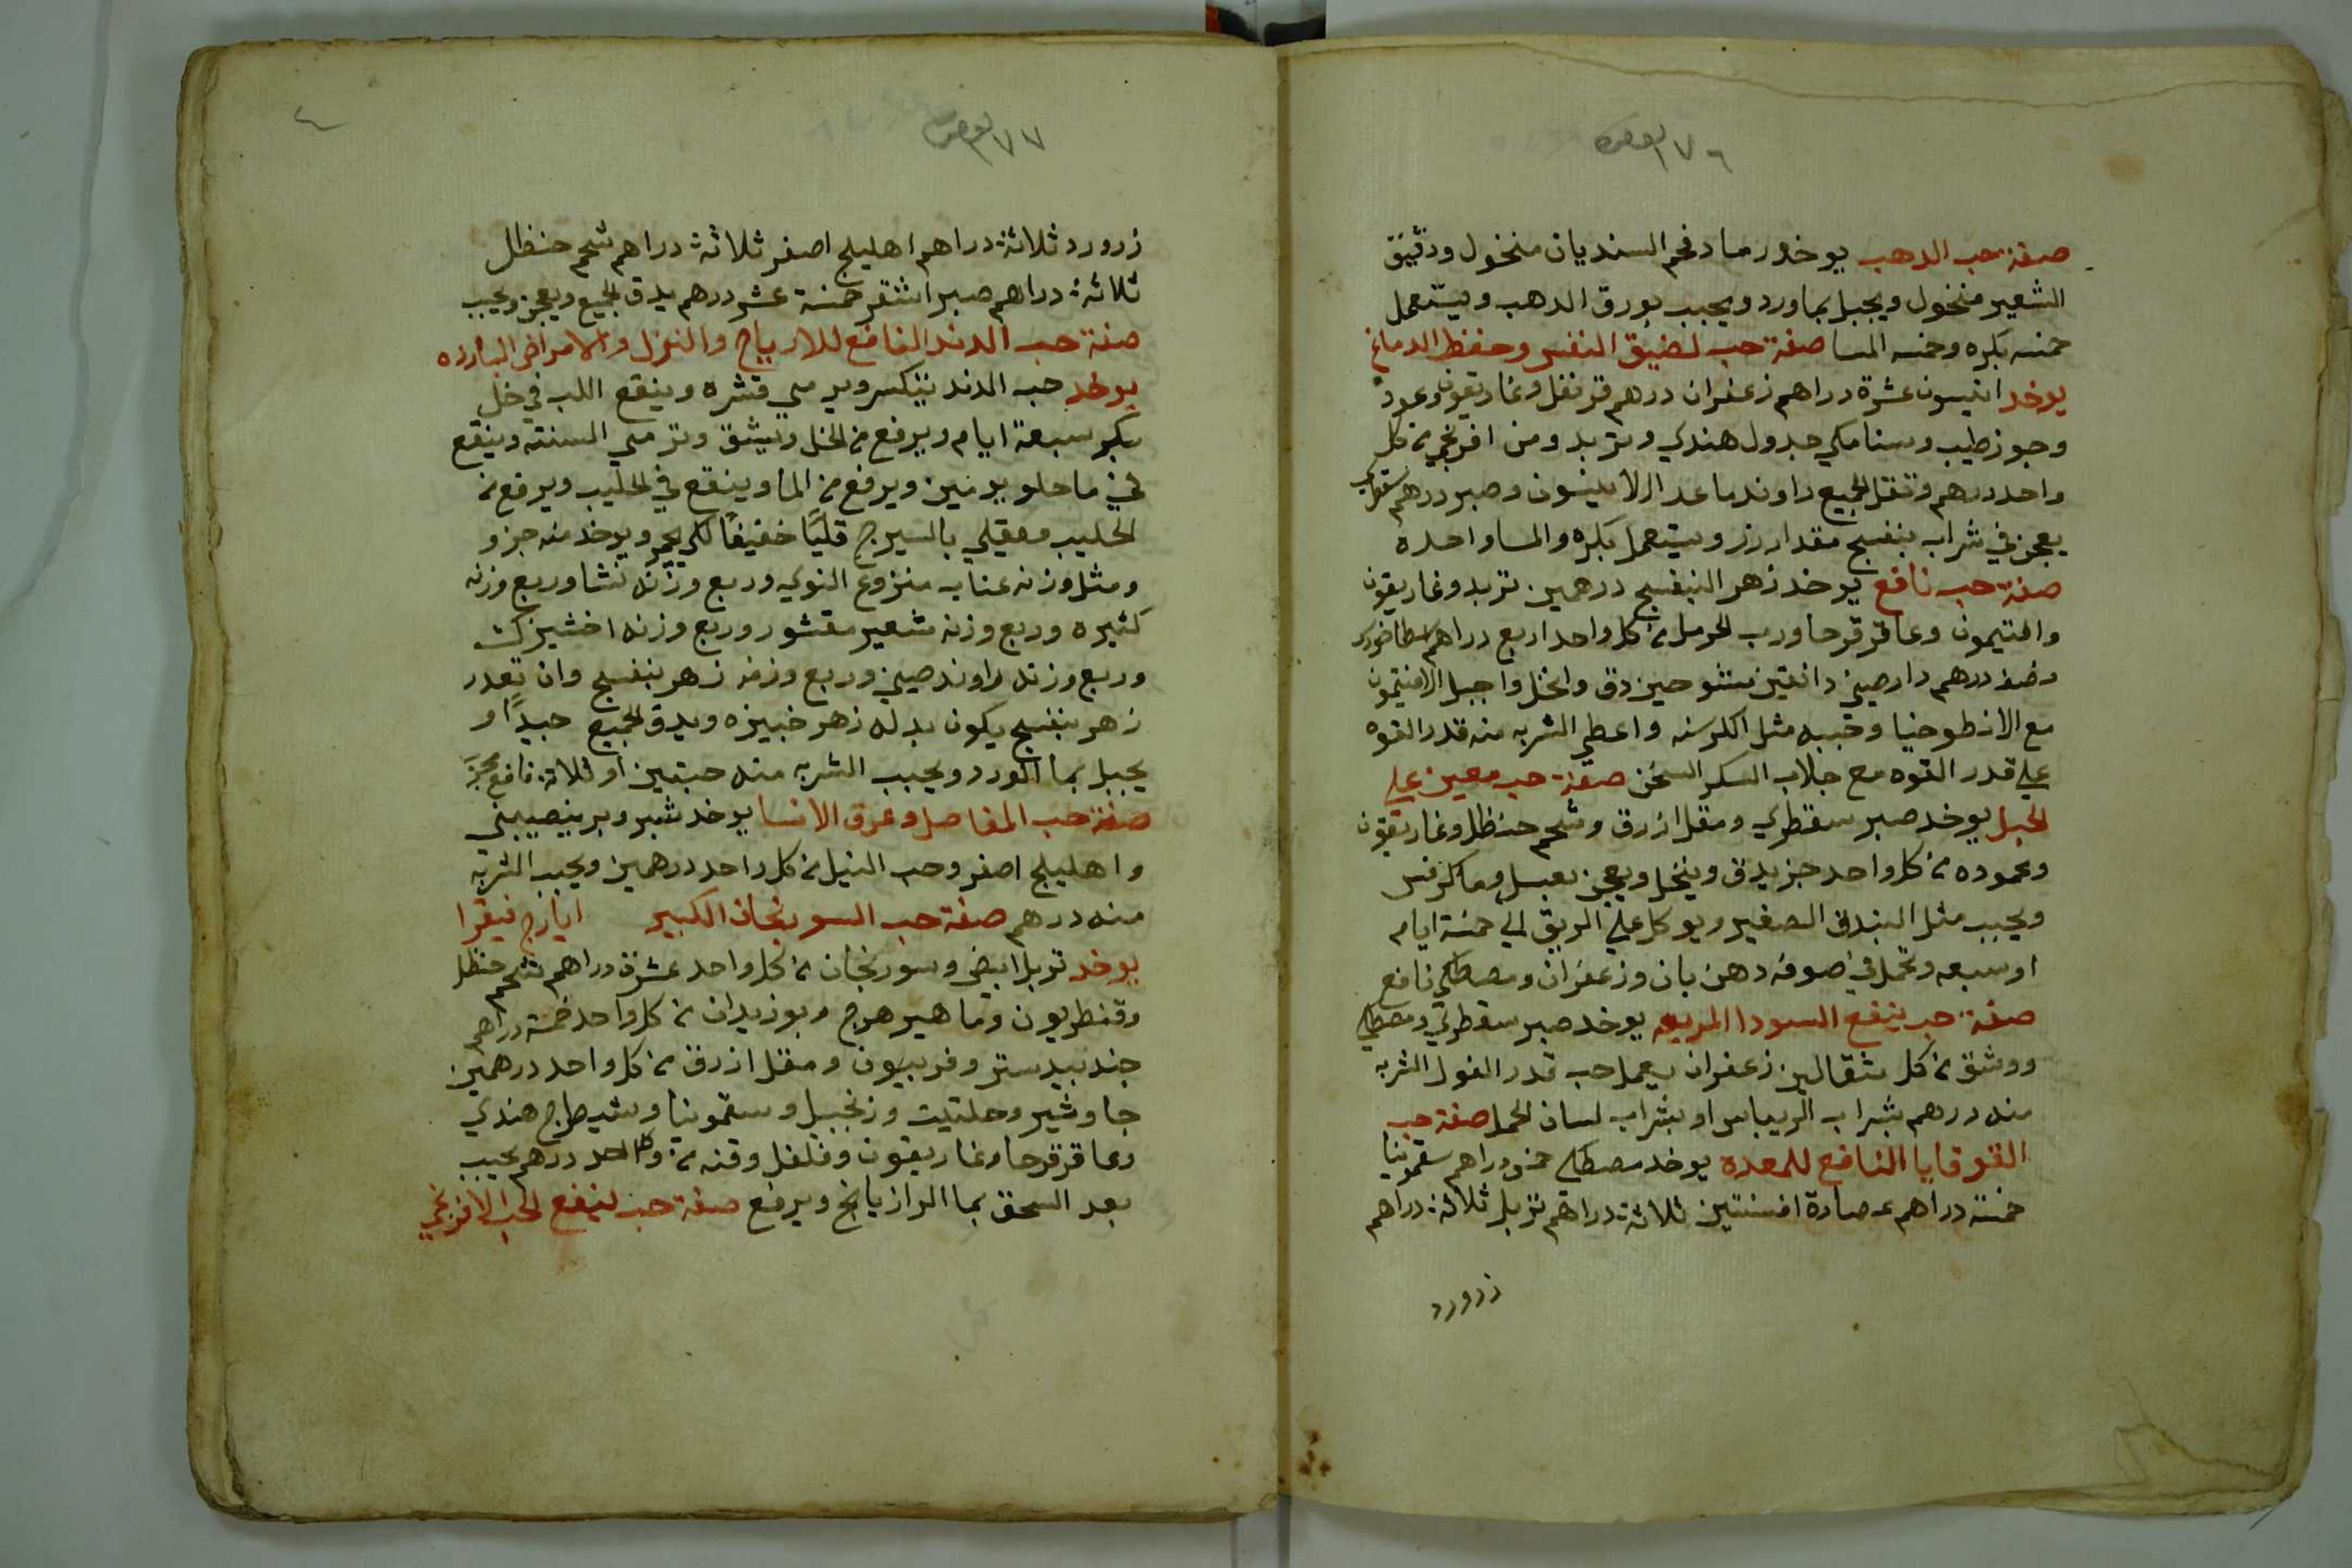 ١٧٦
صفة حب الدهب يوخد رماد فحم السنديان منخول ودقيق
الشعير منخول ويجبل بماورد ويحبب بورق الدهب ويستعمل
خمسه بكره وخمسه المسا صفة حب لضيق النفس وحفظ الدماغ
يوخد انيسون عشرة دراهم زعفران درهم قرنفل وغاريقون وعود
وجوز طيب وسنامكي جدول هندي وتربد ومن افرنجي من كل
واحد درهم وثقل الجميع راوند ماعدا الانيسون وصبر درهم سقطري
يعجن في شراب بنفسج مقدار رز ويستعمل بكره والمسا واحده
صفة حب نافع يوخد زهر البنفسج درهمين تربد وغاريقون
وافتيمون وعاقرقرحا ورب الحرمل من كل واحد اربع دراهم
ونصف درهم دارصيني دانقين دق وانخل واجبل الافتيمون
مع الانطوخيا وحببه مثل الكرسنه واعطي الشربه منه قدر القوه
علي قدر القوه مع جلاب السكر السخن صفة حب معين علي
الحبل يوخد صبر سقطري ومقل ازرق وشحم حنظل وغاريقون
ومحموده من كل واحد جز يدق وينخل ويعجن بعسل وما كرفس
ويحبب مثل البندق الصغير ويوكل علي الريق الي خمسة ايام
او سبعه وتحمل في صوفه دهن بان وزعفران ومصطكي نافع
صفة حب ينفع السودا المريعه يوخد صبر سقطري ومصطكي
ووشق من كل مثقالين زعفران يعمل حب قدر الفول الشربه
منه درهم بشراب الريباس او بشراب لسان الحمل صفة حب
القوقايا النافع للمعده يوخد مصطكي خمس دراهم سقمونيا
خمسة دراهم عصارة افسنتين ثلاثة دراهم تربل ثلاثة دراهم
زرورد
١٧٧
زرورد ثلاثة دراهم اهليلج اصفر ثلاثة دراهم شحم حنظل
ثلاثة دراهم صبر اشقر خمسة عشر درهم يدق الجميع ويعجن ويحبب
صفة حب الدند النافع للارياح والنزل والامراض البارده
يوخد حب الدند يتكسر ويرمي قشره وينقع اللب في خل
بكر سبعة ايام ويرفع من الخل ويشق وترمي السنته وينقع
في ما حلو يومين ويرفع من الما وينقع في الحليب ويرفع من
الحليب ويقلي بالسيرج قليًا خفيفًا لكي يحمر ويوخد منه جزو
ومثل وزنه عناب منزوع النوي وربع وزنه نشا وربع وزنه
كثيره وربع وزنه شعير مقشور وربع وزنه اخشيزك
وربع وزنه راوند صيني وربع وزنه زهر بنفسج وان تعدر
زهر بنفسج يكون بدله زهر خبيزه ويدق الجميع جيدًا و
يجبل بما الورد ويحبب الشربه منه حبتين او ثلاثة نافع مجرب
صفة حب المفاصل وعرق الانسا يوخد شبر وبر بنصيبيني
واهليلج اصفر وحب النيل من كل واحد درهمين ويحبب الشربه
منه درهم صفة حب السورنجان الكبير ايارج فيقرا
يوخد تربل ابيض وسورنجان من كل واحد عشرة دراهم شحم حنظل
وقنطريون وماهيزهرج وبوزيدان من كل واحد خمسة دراهم
جندبيدستر وفربيون ومقل ازرق من كل واحد درهمين
جاوشير وحلتيت وزنجبيل وسقمونيا وشيطرج هندي
وعاقرقرحا وغاريقون وفلفل وقنه من كل واحد درهم يحبب
بعد السحق بما الرازيانج ويرفع صفة حب لينفع الحب الافرنجي